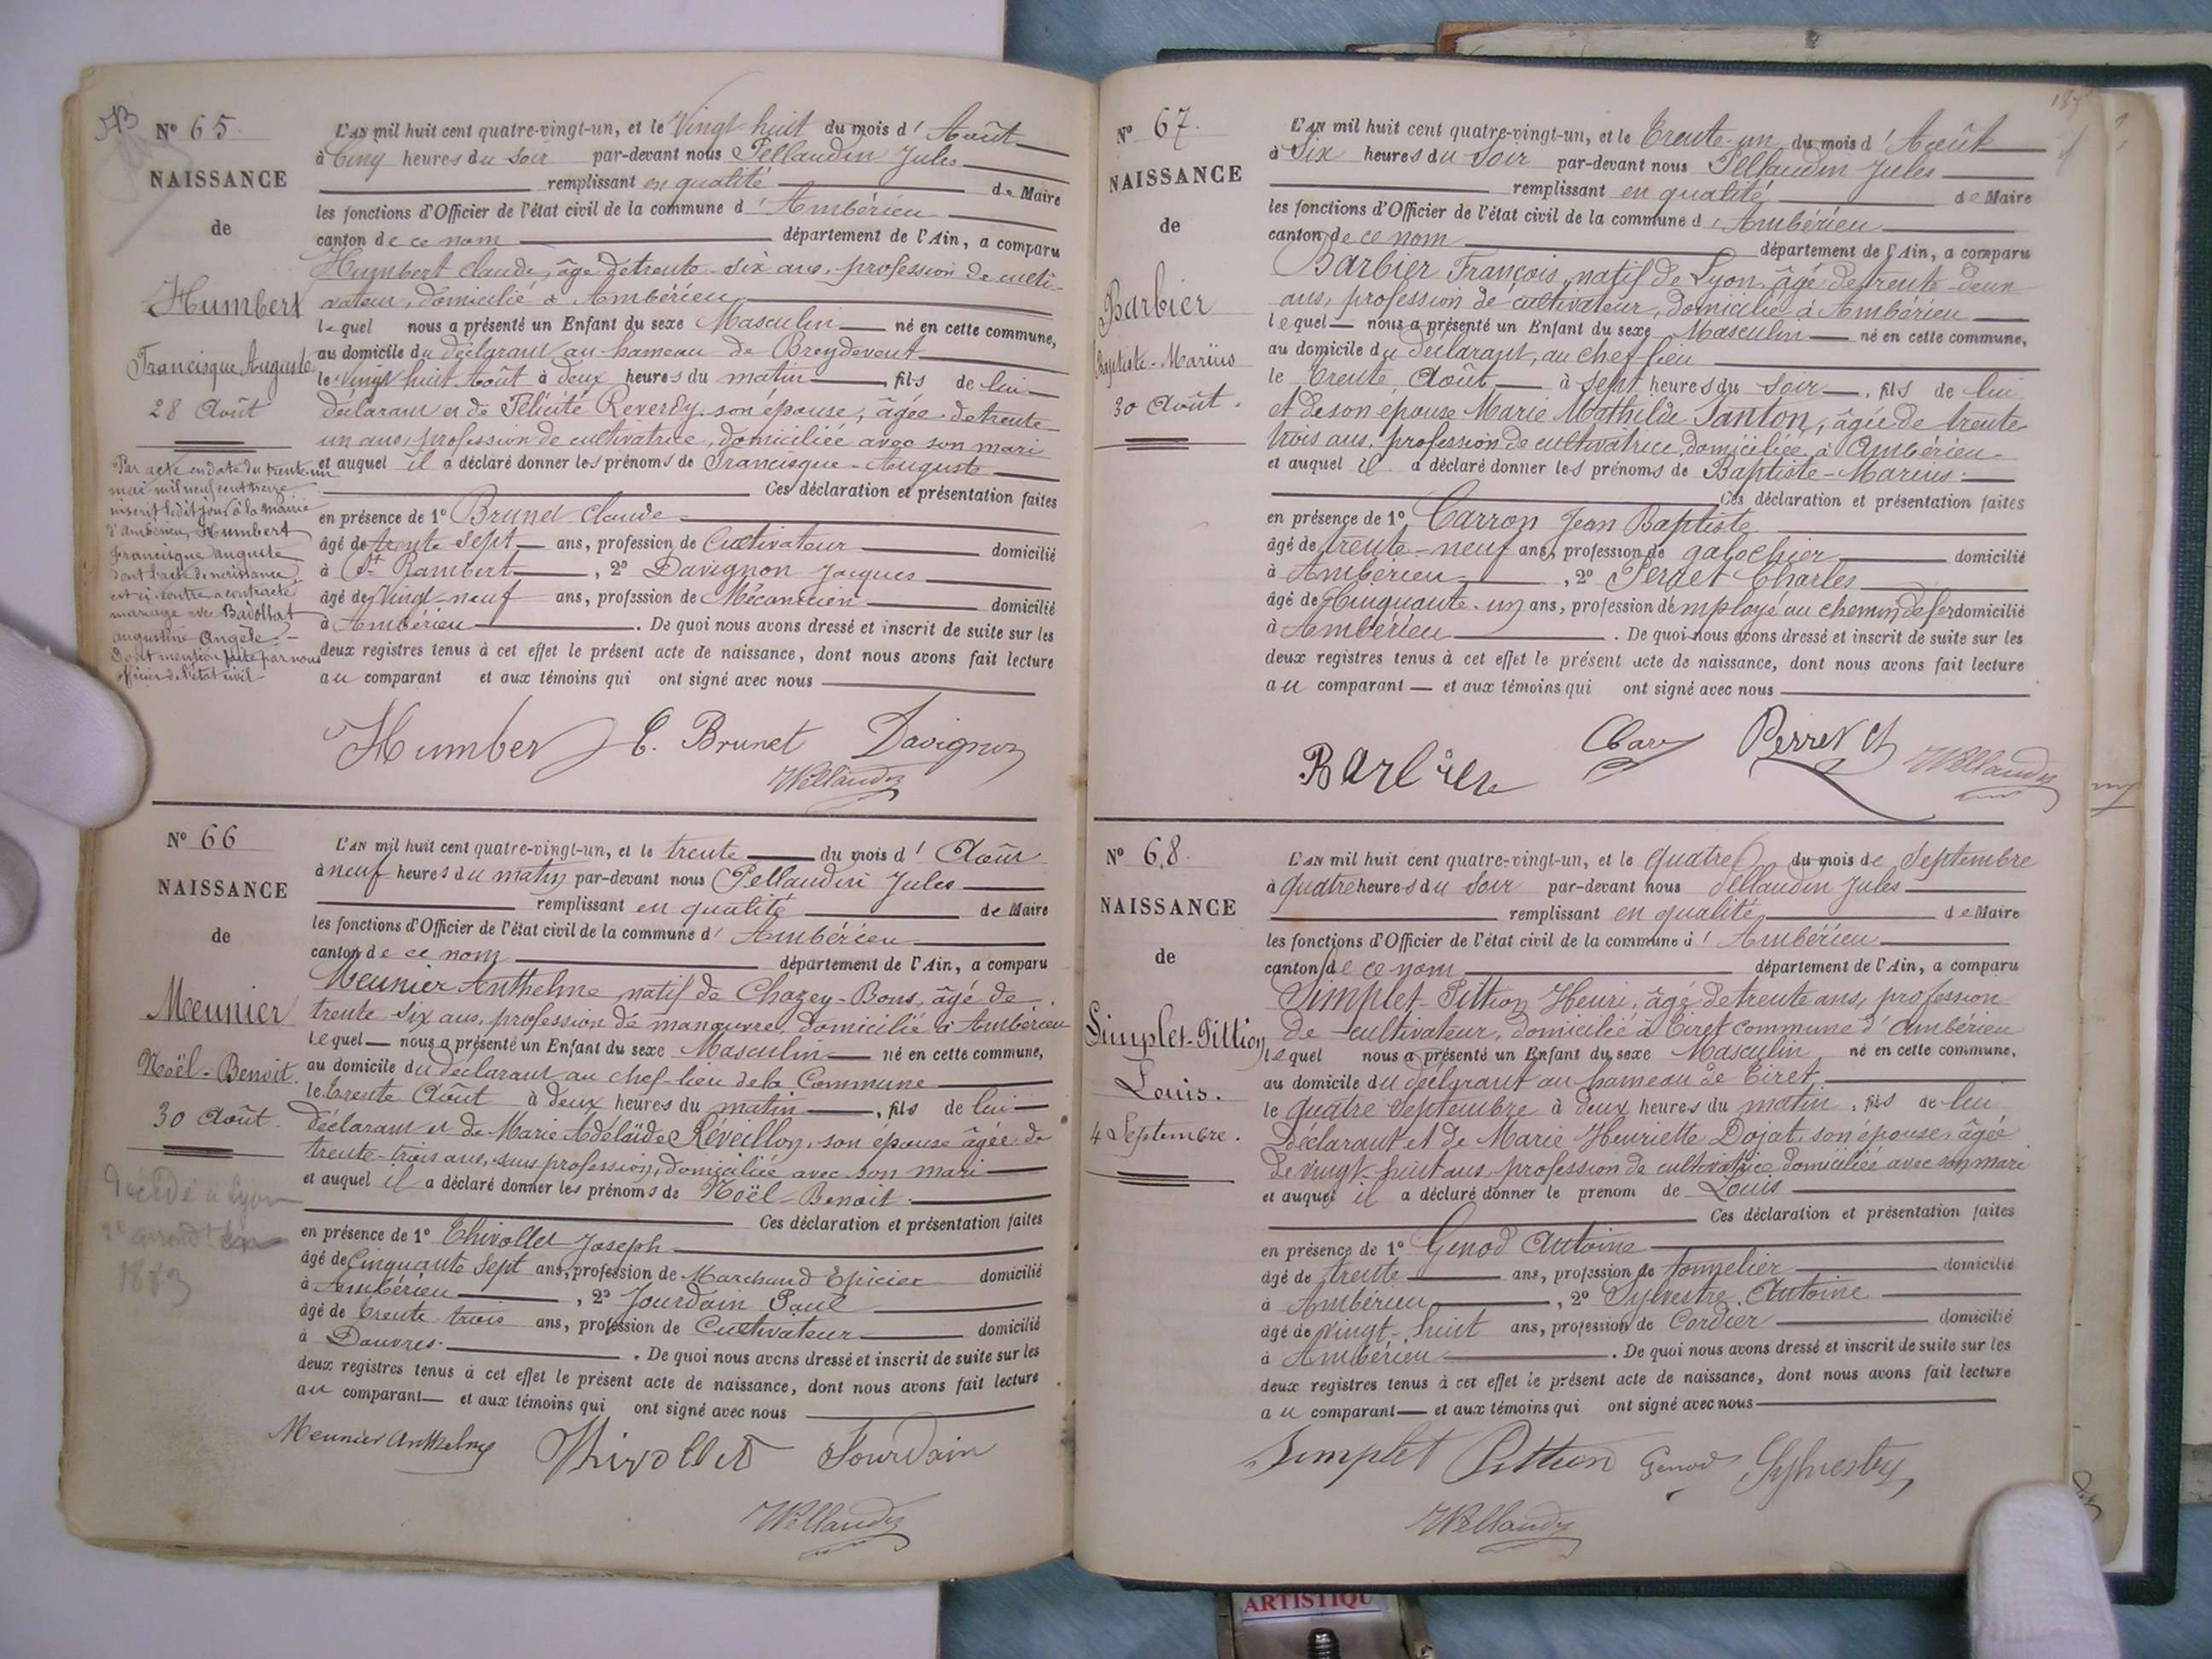 N° 65
NAISSANCE
de
Humbert
Francisque Auguste
28 Août
Par acte en date du trente-un
mai mil neuf cent treize
inscrit ledit jour à la mairie
d'Ambérieu, Humbert
Francisque Auguste
dont l'acte de naissance
est ci-contre a contracté
mariage avec Badollat
Augustine Angèle. —
Dont mention faite par nous
officier de l'état civil
L'AN mil huit cent quatre-vingt-un, et le Vingt huit du mois d' Août
à Cinq heures du Soir par-devant nous Pellaudin Jules
remplissant en qualité de Maire
les fonctions d'Officier de l'état civil de la commune d' Ambérieu
canton de ce nom département de l'Ain, a comparu
Humbert Claude, âgé de trente-six ans, profession de culti-
vateur, domicilié à Ambérieu
lequel nous a présenté un Enfant du sexe Masculin né en cette commune,
au domicile du déclarant au hameau de Breydevent
le vingt huit Août à deux heures du matin, fils de lui
déclarant et de Félicité Reverdy son épouse, âgée de trente
un ans, profession de cultivatrice, domiciliée avec son mari
et auquel il a déclaré donner les prénoms de Francisque-Auguste
Ces déclaration et présentation faites
en présence de 1° Brunet Claude
âgé de trente sept ans, profession de Cultivateur domicilié
à St Rambert, 2° Davignon Jacques
âgé de Vingt-neuf ans, profession de Mécanicien domicilié
à Ambérieu. De quoi nous avons dressé et inscrit de suite sur les
deux registres tenus à cet effet le présent acte de naissance, dont nous avons fait lecture
au comparant et aux témoins qui ont signé avec nous
Humbert C. Brunet Davignon
Pellaudin
N° 66
NAISSANCE
de
Meunier
Noël-Benoit.
30 Août.
Décédé à Lyon
2e arrondt
L'AN mil huit cent quatre-vingt-un, et le trente du mois d' Août
à neuf heures du matin par-devant nous Pellaudin Jules
remplissant en qualité de Maire
les fonctions d'Officier de l'état civil de la commune d' Ambérieu
canton de ce nom département de l'Ain, a comparu
Meunier Anthelme natif de Chazey-Bons, âgé de
trente six ans, profession de manœuvre, domicilié à Ambérieu
lequel nous a présenté un Enfant du sexe Masculin né en cette commune,
au domicile du déclarant au chef-lieu de la Commune
le trente Août à deux heures du matin, fils de lui
déclarant et de Marie Adélaïde Réveillon, son épouse âgée de
trente-trois ans, sans profession, domiciliée avec son mari
et auquel il a déclaré donner les prénoms de Noël-Benoit.
Ces déclaration et présentation faites
en présence de 1° Thivollet Joseph
âgé de Cinquante sept ans, profession de Marchand Epicier domicilié
à Ambérieu, 2° Jourdain Paul
âgé de trente trois ans, profession de Cultivateur domicilié
à Douvres. De quoi nous avons dressé et inscrit de suite sur les
deux registres tenus à cet effet le présent acte de naissance, dont nous avons fait lecture
au comparant et aux témoins qui ont signé avec nous
Meunier Anthelme Thivollet Jourdain
Pellaudin
N° 67.
NAISSANCE
de
Barbier
Baptiste-Marius
30 Août.
L'AN mil huit cent quatre-vingt-un, et le Trente-un du mois d' Août
à Six heures du Soir par-devant nous Pellaudin Jules
remplissant en qualité de Maire
les fonctions d'Officier de l'état civil de la commune d' Ambérieu
canton de ce nom département de l'Ain, a comparu
Barbier François, natif de Lyon, âgé de trente-deux
ans, profession de cultivateur, domicilié à Ambérieu
lequel nous a présenté un Enfant du sexe Masculin né en cette commune,
au domicile du déclarant, au chef lieu
le trente Août à sept heures du soir, fils de lui
et de son épouse Marie Mathilde Santon, âgée de trente
trois ans, profession de cultivatrice, domiciliée à Ambérieu
et auquel il a déclaré donner les prénoms de Baptiste-Marius.
Ces déclaration et présentation faites
en présence de 1° Carron Jean Baptiste
âgé de trente-neuf ans, profession de galochier domicilié
à Ambérieu, 2° Perret Charles
âgé de Cinquante-un ans, profession d'employé au chemin de fer domicilié
à Ambérieu. De quoi nous avons dressé et inscrit de suite sur les
deux registres tenus à cet effet le présent acte de naissance, dont nous avons fait lecture
au comparant et aux témoins qui ont signé avec nous
Barbier Perret
Pellaudin
N° 68.
NAISSANCE
de
Simplet-Pittion
Louis.
4 Septembre.
L'AN mil huit cent quatre-vingt-un, et le quatre du mois de Septembre
à quatre heures du Soir par-devant nous Pellaudin Jules
remplissant en qualité de Maire
les fonctions d'Officier de l'état civil de la commune d' Ambérieu
canton de ce nom département de l'Ain, a comparu
Simplet-Pittion Henri, âgé de trente ans, profession
de cultivateur, domicilié à Tiret commune d'Ambérieu
lequel nous a présenté un Enfant du sexe Masculin né en cette commune,
au domicile du déclarant au hameau de Tiret.
le quatre Septembre à deux heures du matin, fils de lui
déclarant et de Marie Henriette Dojat, son épouse, âgée
de vingt-huit ans profession de cultivatrice domiciliée avec son mari
et auquel il a déclaré donner le prenom de Louis
Ces déclaration et présentation faites
en présence de 1° Genod Antoine
âgé de trente ans, profession de tonnelier domicilié
à Ambérieu, 2° Sylvestre Antoine
âgé de vingt-huit ans, profession de Cordier domicilié
à Ambérieu. De quoi nous avons dressé et inscrit de suite sur les
deux registres tenus à cet effet le présent acte de naissance, dont nous avons fait lecture
au comparant et aux témoins qui ont signé avec nous
Simplet Pittion Genod Sylvestre
Pellaudin
ARTISTIQU